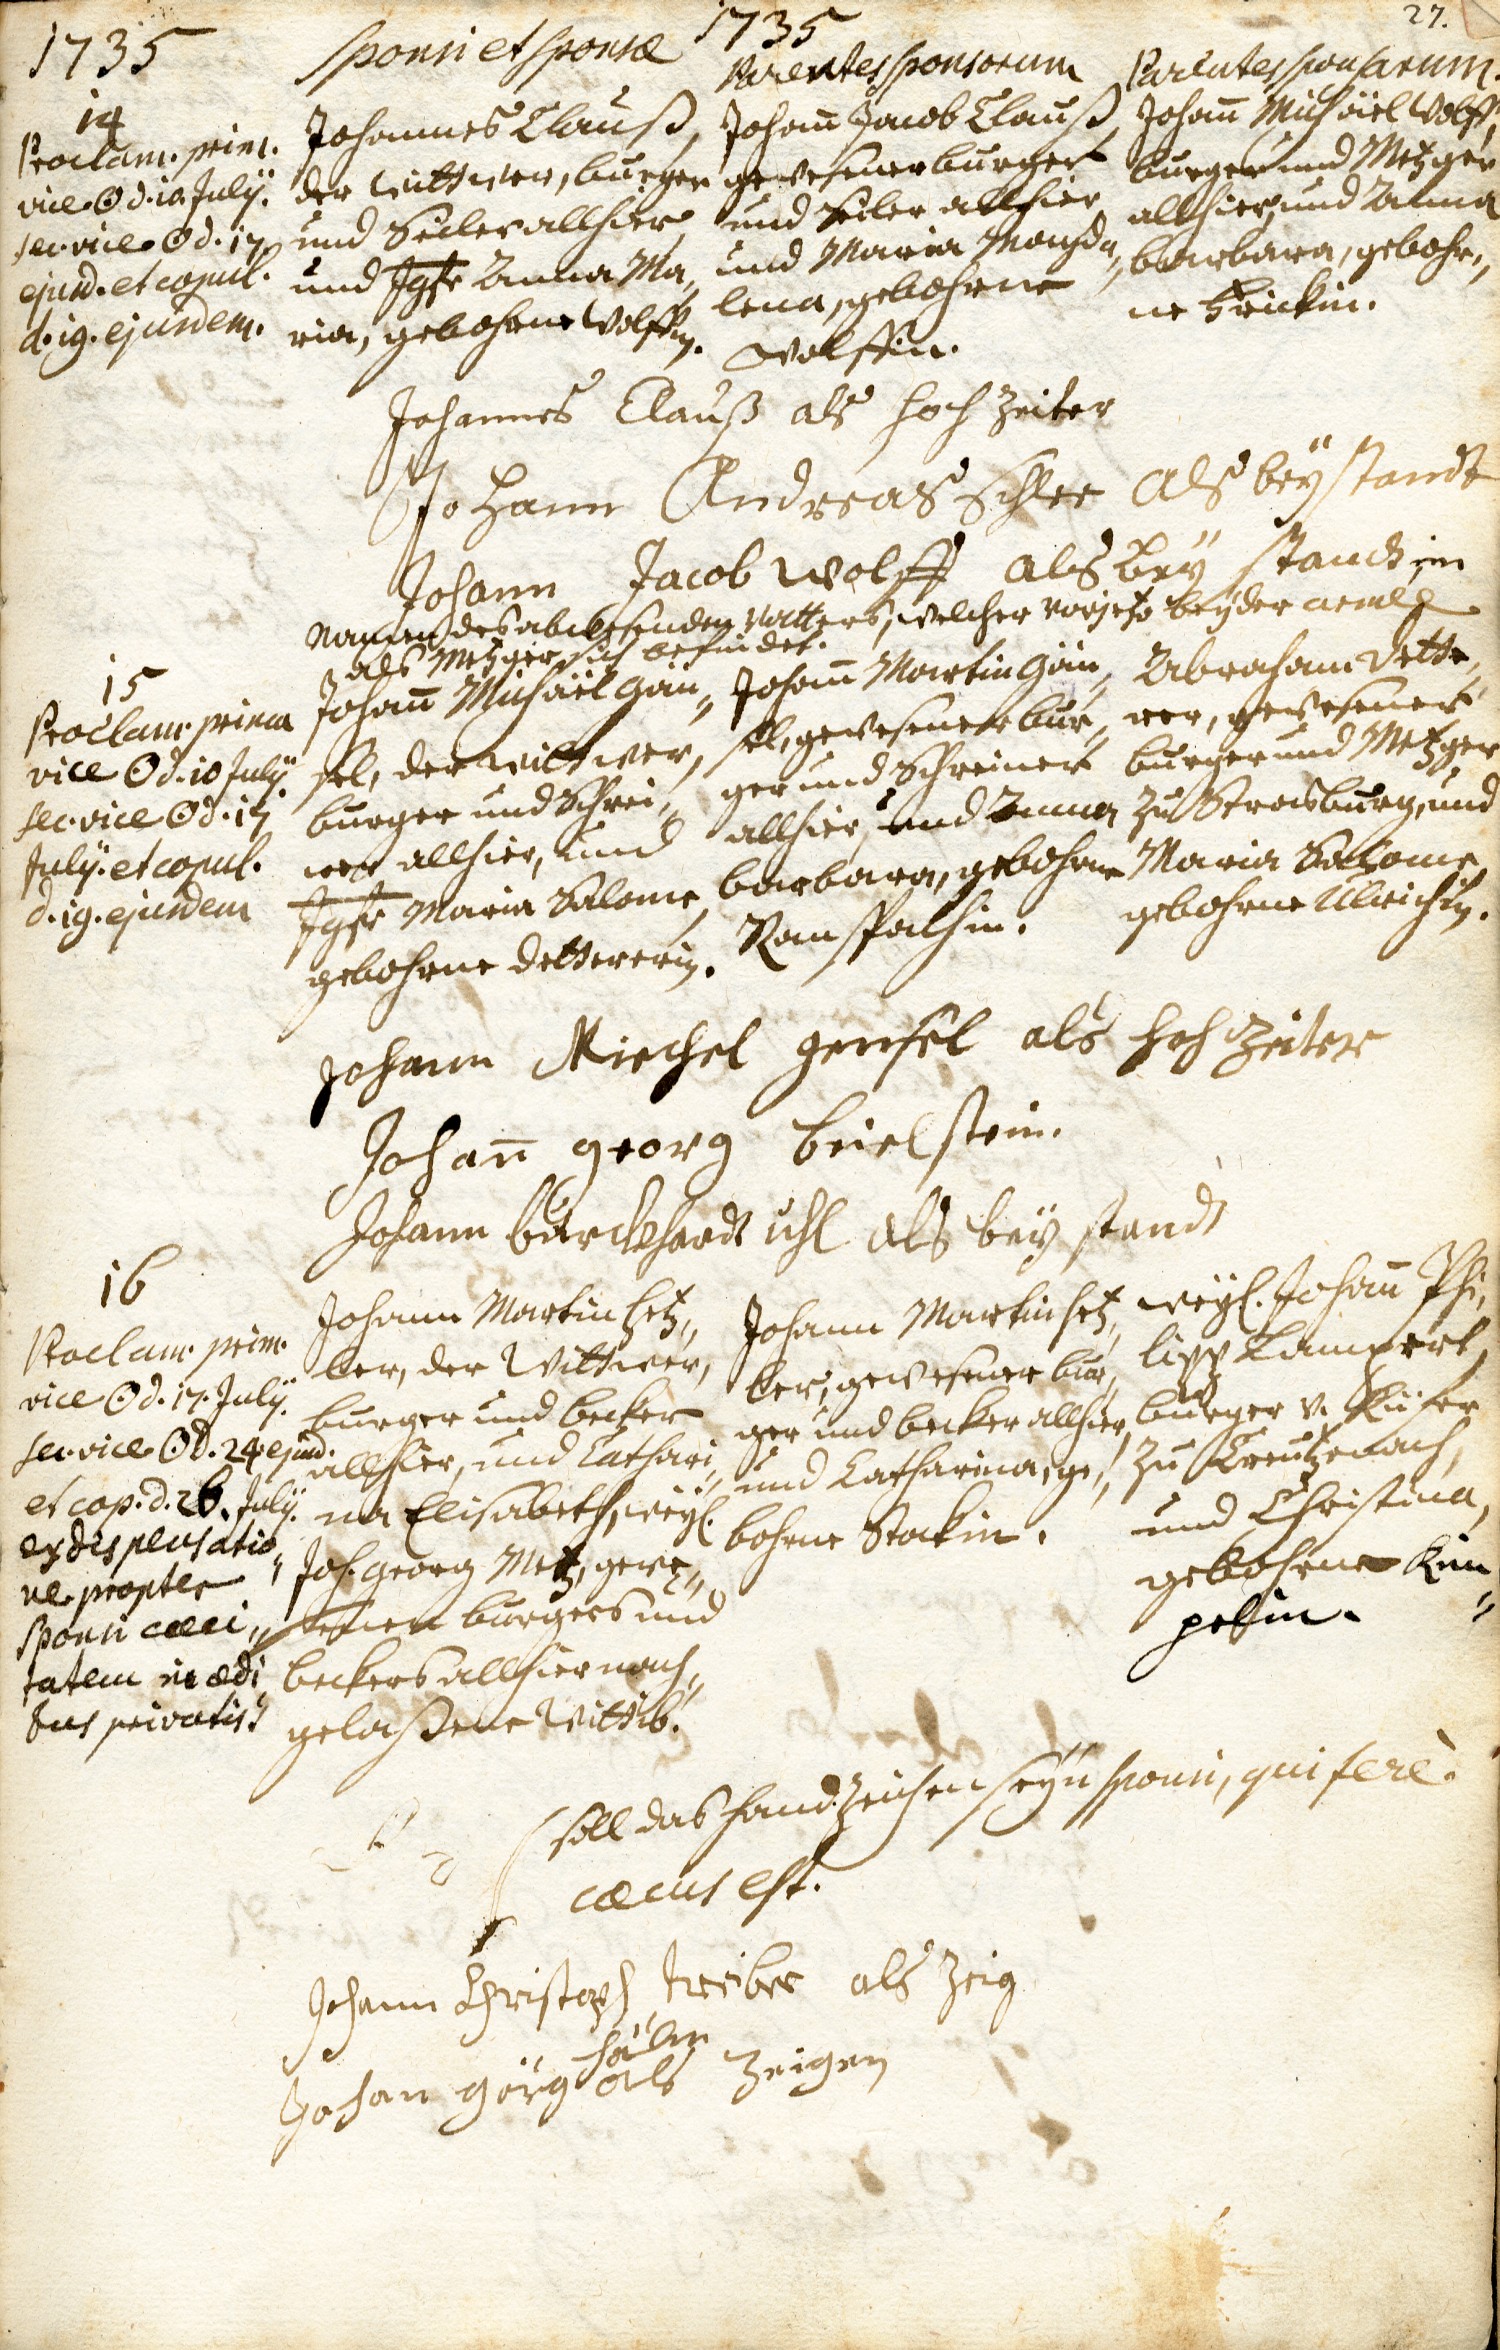 27.
1735
1735
Sponsi et Sponsæ
Parentes Sponsorum
Parentes Sponsarum.
14
Proclam. prim.
vice ☉ d. 10. Julÿ.
sec. vice ☉ d. 17
ejusd. et copul.
d. 19. ejusdem.
Johannes Clauß,
der Wittwer, burger
und Seiler allhier,
und Jgfr Anna Ma„
ria, gebohrne Wolffin.
Johañ Jacob Clauß,
gewesener burger
und Seiler allhier
und Maria Magda„
lena, gebohrne
Wolffin.
Johañ Michäel Wolff,
burger und Metzger
allhier, und Anna
barbara, gebohr„
ne Frickin.
Johannes Clauß als hochzeiter
Johann Andreas Schler als beystandt
Johann Jacob Wolff als bey standt im
Namen des abwesenden Vatters, welcher vorjetz beÿ der armee
als Metzger sich befindet.
15
Proclam. prima
vice ☉ d. 10 Julÿ.
sec. vice ☉ d. 17
Julÿ. et copul.
d. 19. ejusdem
Johañ Michäel Gän„
sel, der Wittwer,
burger und Schrei„
ner allhier, und
Jgfr Maria Salome,
gebohrne Dettererin.
Johañ Martin Gän„
sel, gewesener bur„
ger und Schreiner
allhier, und Anna
barbara, gebohrne
Ranspachin.
Abraham Dette„
rer, gewesener
burger und Metzger
zu Strasburg, und
Maria Salome,
gebohrne Ulrichin.
Johann Miechel gensel als hochzeiter
Johañ georg beielstein.
Johann burckhardt uhl als beÿ standt
16
Proclam. prim.
vice ☉ d. 17. Julÿ.
sec. vice ☉ d. 24. ejusd.
et cop. d. 26. Julÿ.
ex dispensatio„
ne propter
sponsi cæci„
tatem in ædi
bus privatis.
Johann Martin Hetz„
ler, der Wittwer,
burger und becker
allhier, und Cathari„
na Elisabeth, weÿl.
Joh. Georg Metz, gewe„
senen burgers und
beckers allhier nach„
gelaßene Wittib.
Johann Martin Hetz„
ler, gewesener bur„
ger und becker allhier,
und Catharina, ge„
bohrne Stockin.
weÿl. Johañ Phi„
lipp Lampert,
burger v. Küfer
zu Creutzenach,
und Christina,
gebohrne Küm„
pelin.
soll das handzeichen seÿn sponsi, qui ferè
cæcus est.
Johann Christoph Treiber als Zeig
Johan görg als Zeigen